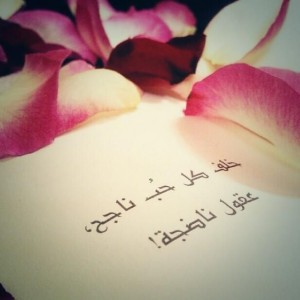 خلف كل حُب ناجح،
عقول ناضجة!